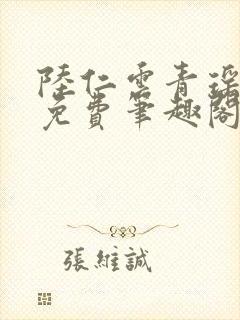 陸仁雲青瑶
免費筆趣閣
張維誠